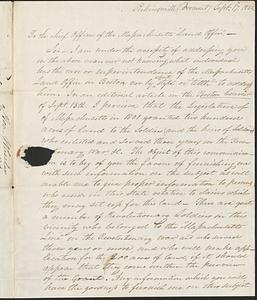 Perkinsville (Vermont) Sept. 17, 1832
To the Chief Officer of the Massachusetts Land Office –
Sir – I am under the necessity of addressing you
in the above manner not knowing what individual
has the care or superintendence of the Massachusetts
Land Office in Boston or by what title to address
him. In an editorial article in the Boston
of Sept. 13th I perceive that the Legislature
of Massachusetts in 1801 granted two hundred
acres of land to the Soldiers and the heirs of Soldiers
who enlisted and served three years in the
revolutionary war. The object of this communica
tion is to beg of you the favor of furnishing me
with such information on the subject as will
enable me to give proper information to persons
who reside in this State relative to claims which
they may set up for his land – There are quite
a number of Revolutionary Soldiers in this
vicinity who belonged to the "Massachusetts
Line" in the Revolutionary war and who served
three years or more, and who will make app-
lication for the 200 acres of land, if it should
appear that they come within the
of the grant. Any information which you will
have the goodness to furnish me on this subject